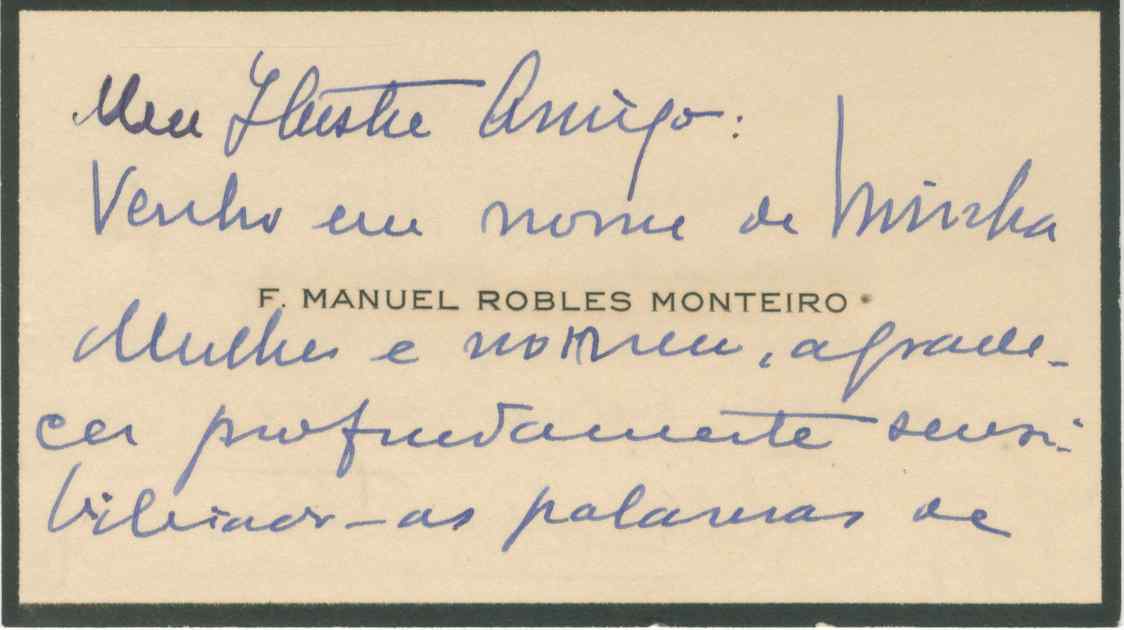 Meu Ilustre Amigo:
Venho em nome de minha
F. MANUEL ROBLES MONTEIRO
Mulher e no meu, agrade-
cer profundamente sensi-
bilizado - as palavras de